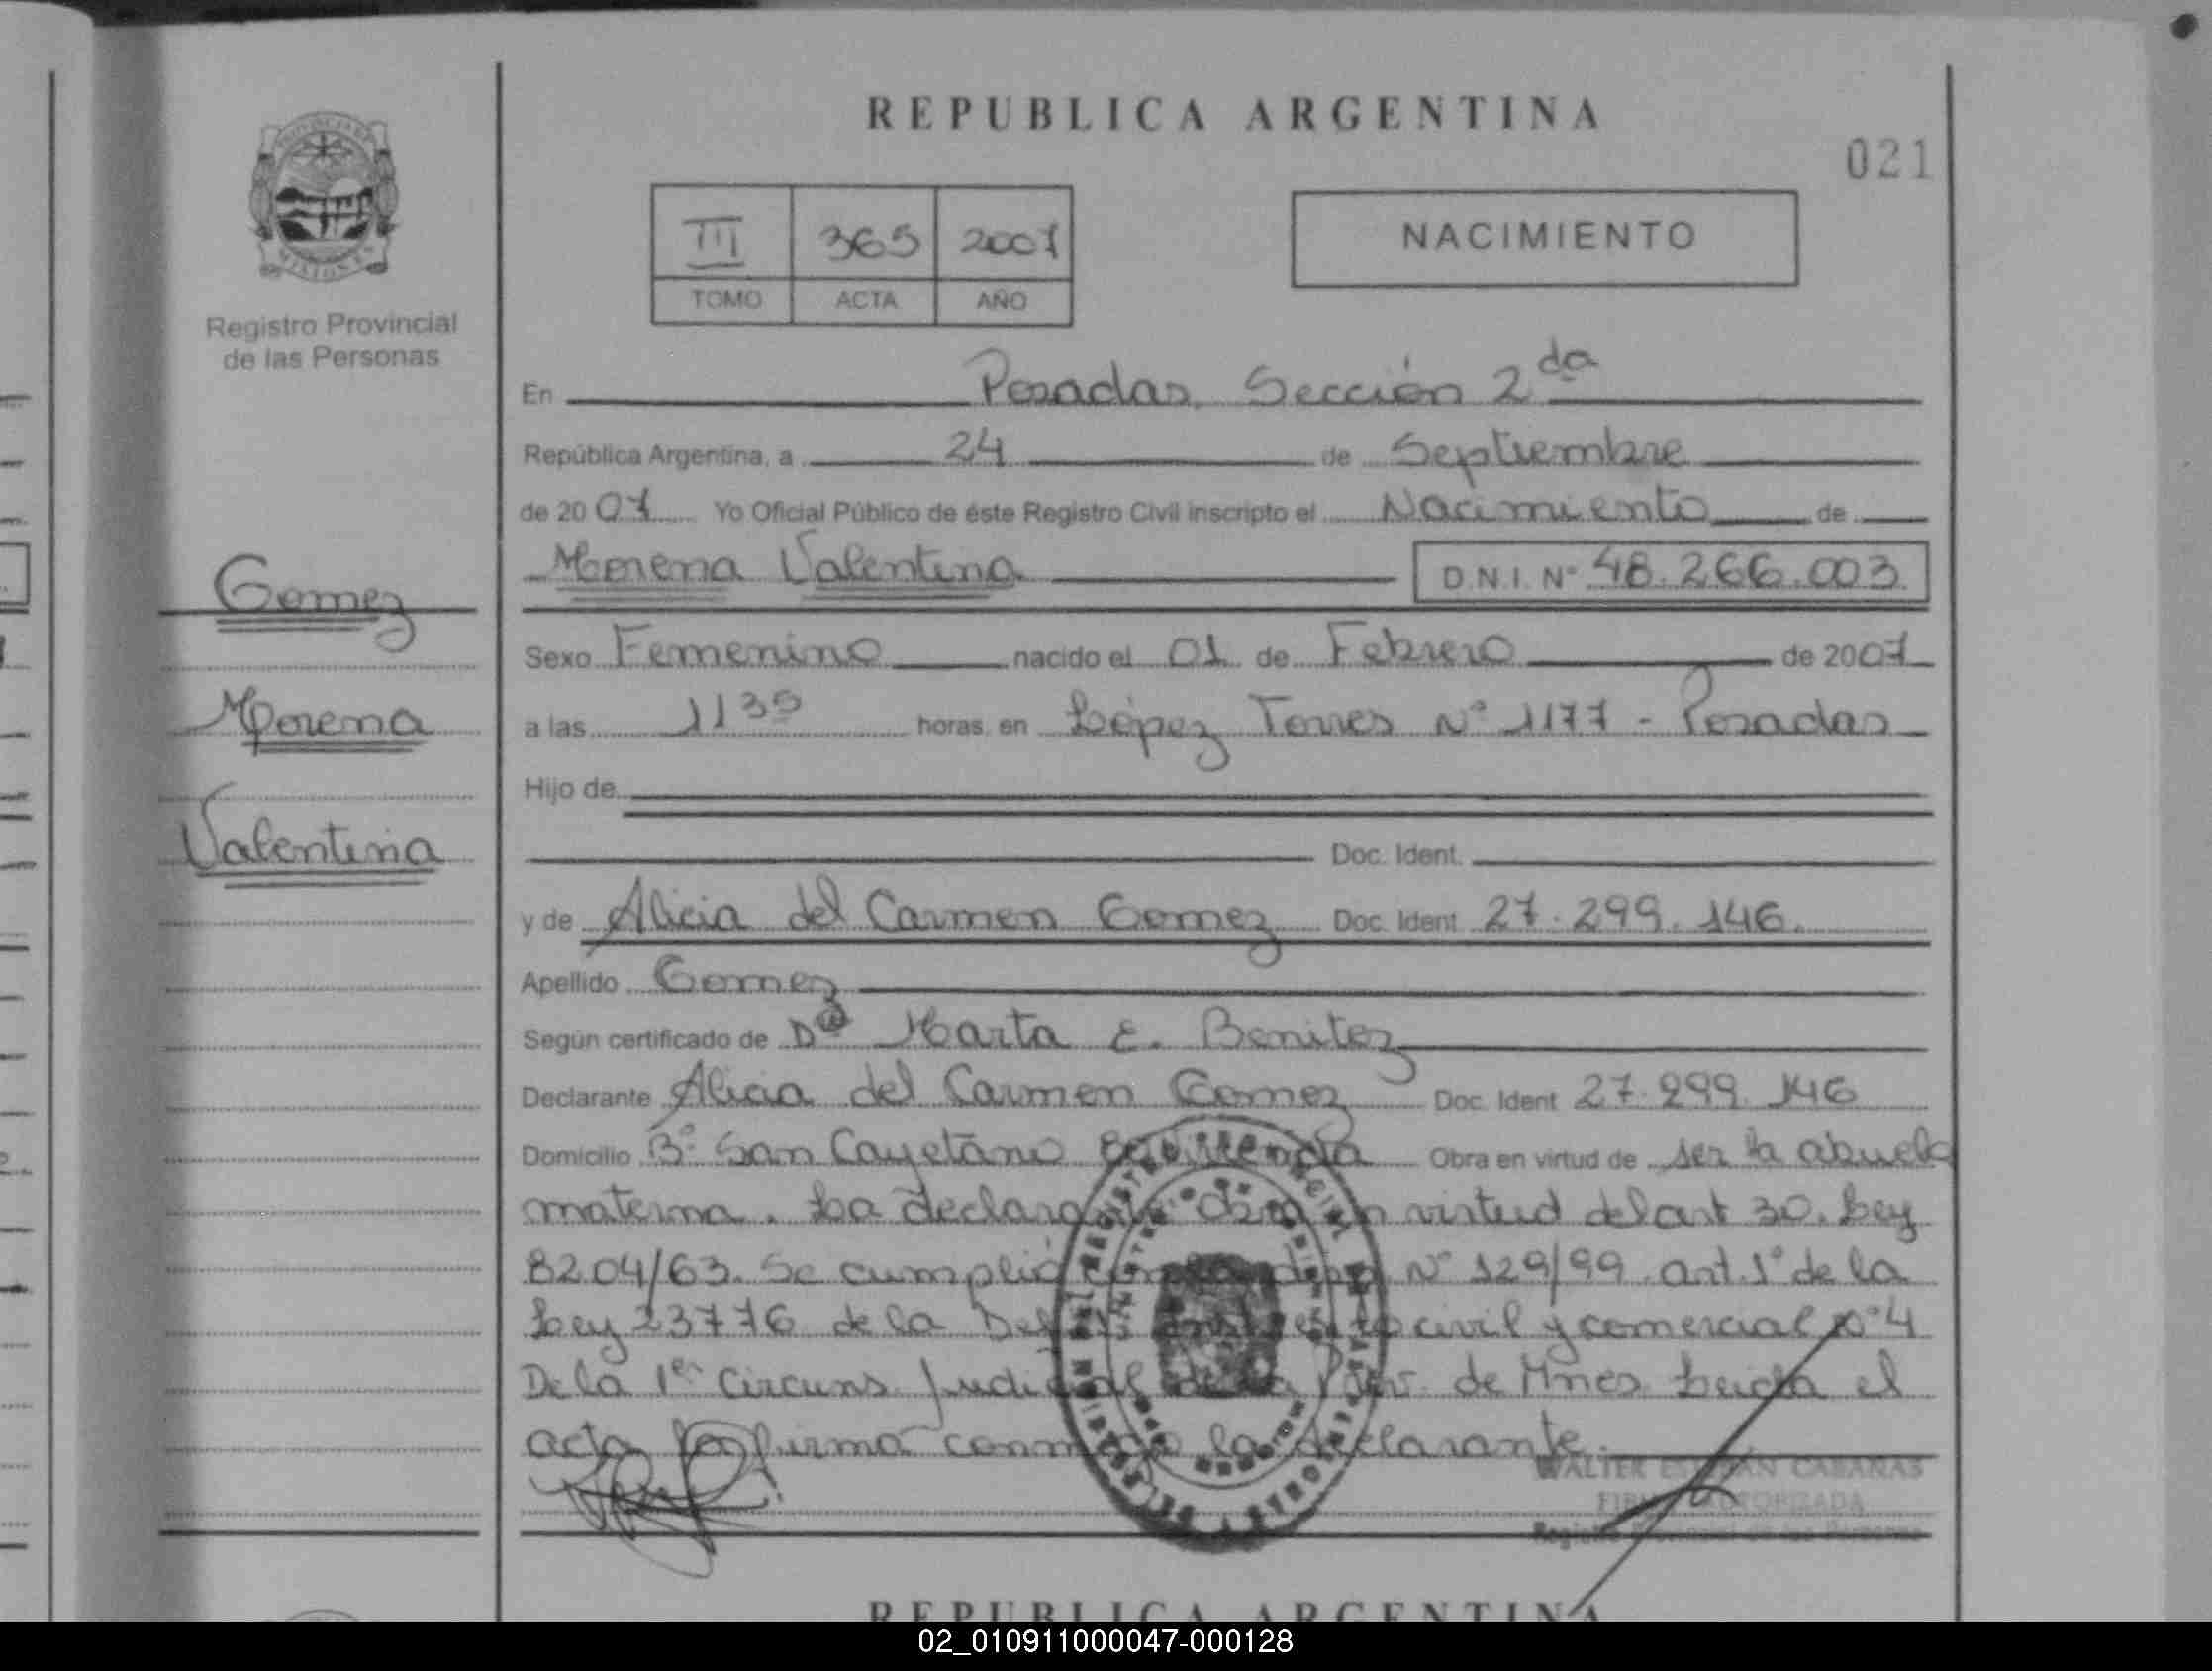 REPUBLICA ARGENTINA
021
III 365 2007
TOMO ACTA AÑO
NACIMIENTO
MISIONES
Registro Provincial
de las Personas
Gomez
Morena
Valentina
En Posadas, Sección 2da
República Argentina, a 24 de Septiembre
de 2007 Yo Oficial Público de éste Registro Civil inscripto el Nacimiento de
Morena Valentina D.N.I. Nº 48.266.003
Sexo Femenino nacido el 01 de Febrero de 2007
a las 1135 horas. en López Torres Nº 1177 - Posadas
Hijo de
Doc. Ident.
y de Alicia del Carmen Gomez Doc. Ident 27.299.146.
Apellido Gomez
Según certificado de Marta E. Benitez
Declarante Alicia del Carmen Gomez Doc. Ident 27.299.146
Domicilio Bº San Cayetano Obra en virtud de ser la abuela
materna. La declarante obra en virtud del art 30. Ley
8204/63. Se cumplió Nº 129/99 art. 1º de la
Ley 23776 de la civil y comercial nº 4
De la 1er Circuns. Judicial de la Prov. de Mnes Leida el
acta la firma conmigo la declarante.
WALTER ESTEBAN CABAÑAS
FIRMA AUTORIZADA
Registro Provincial de las Personas
REPUBLICA ARGENTINA
02_010911000047-000128